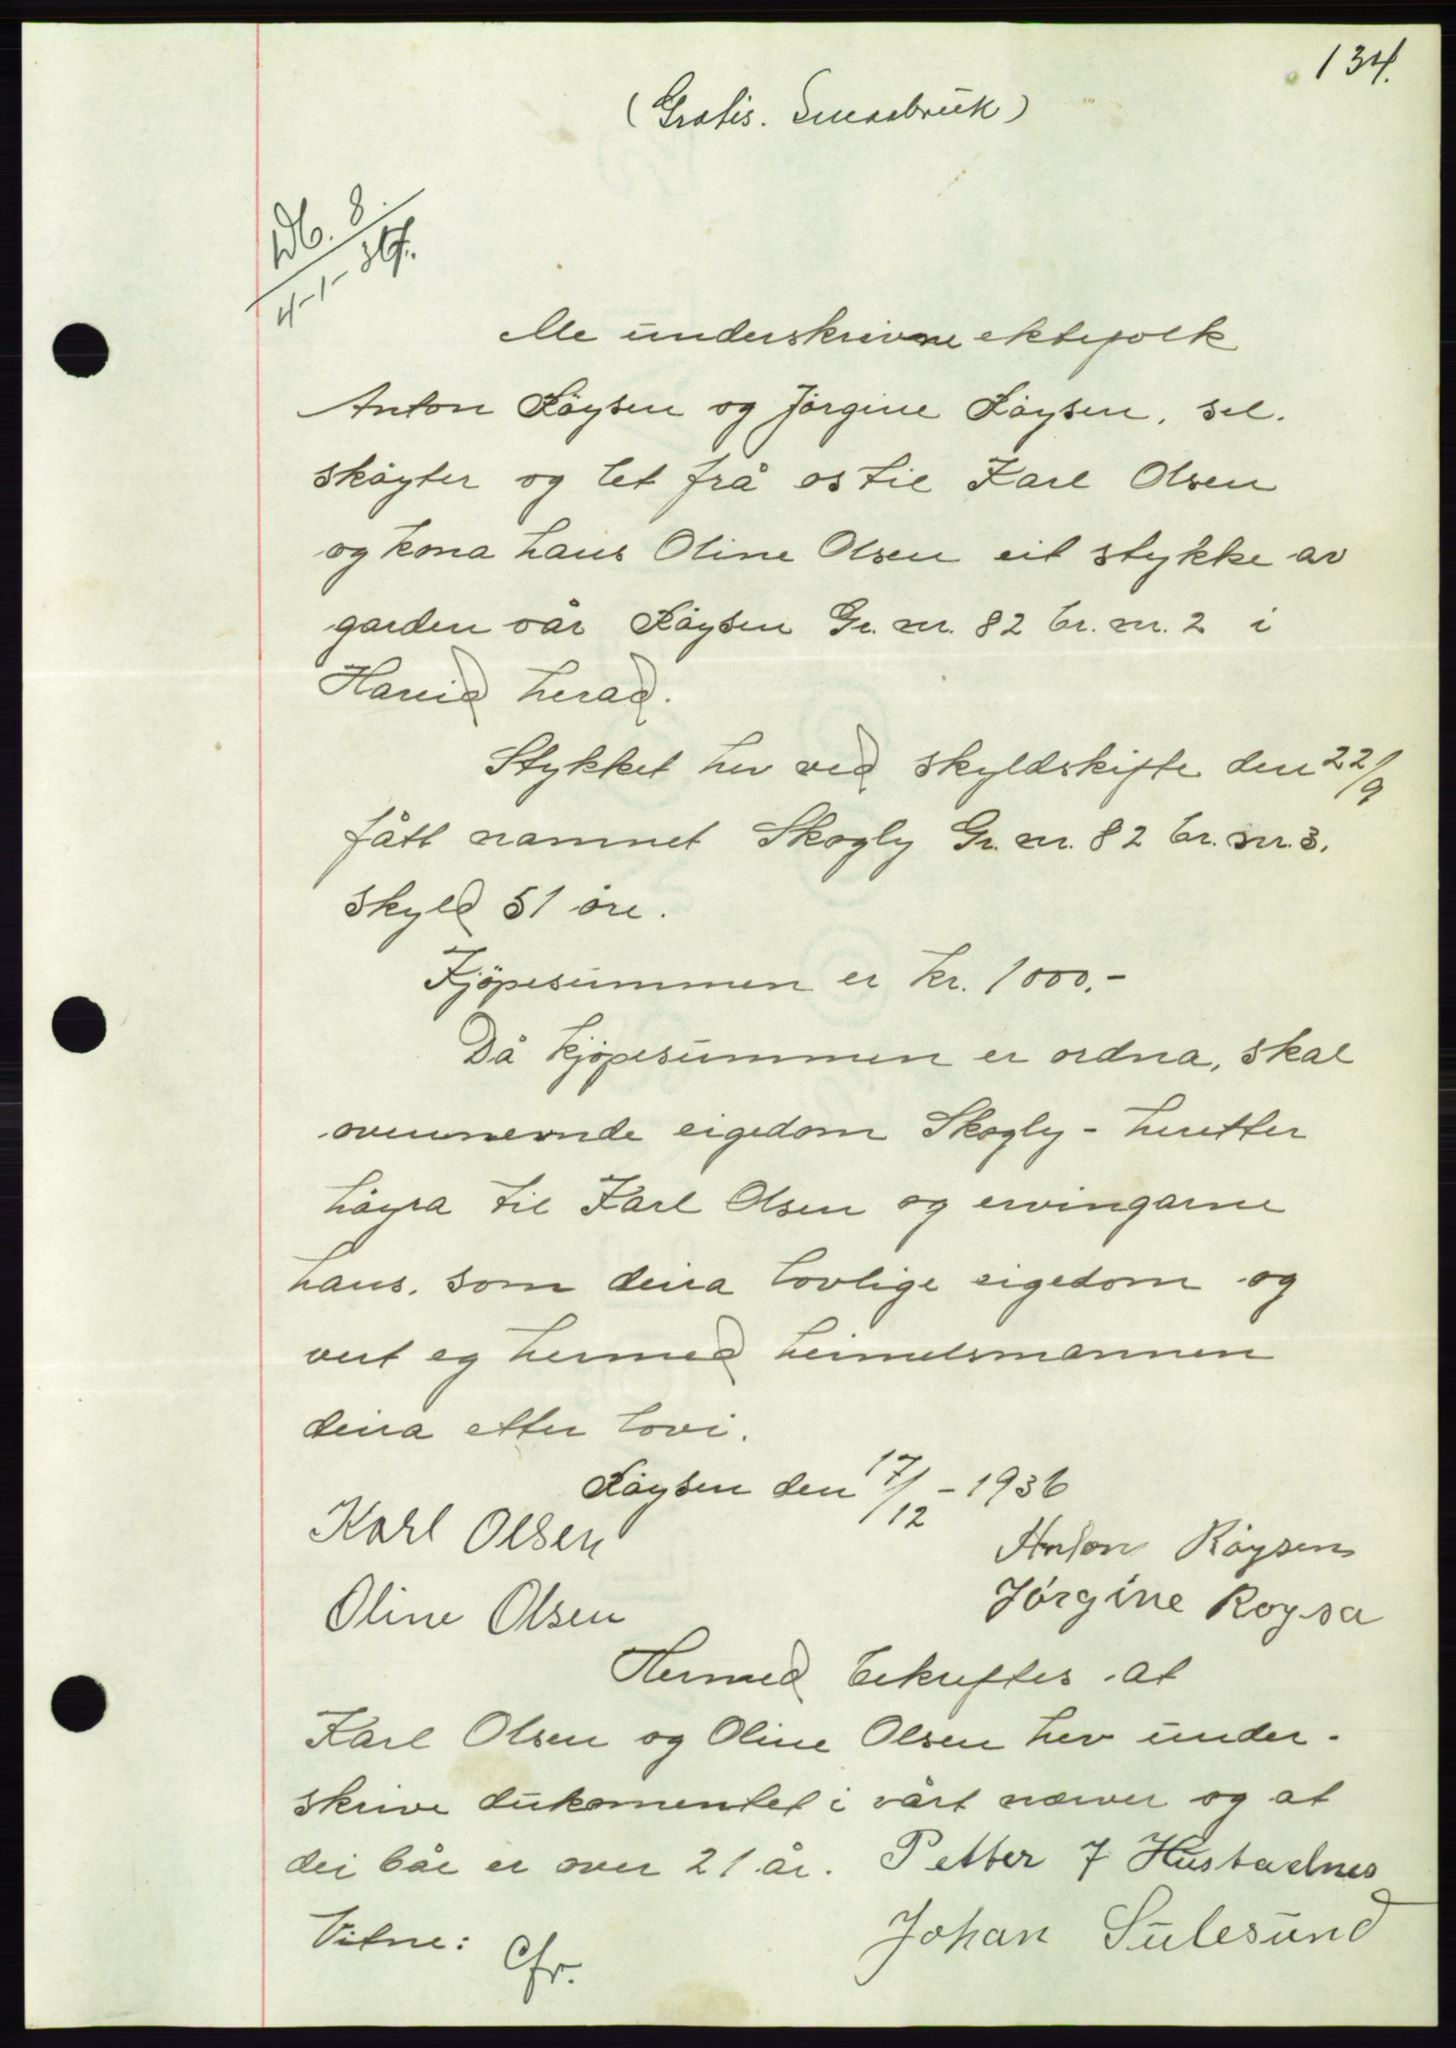 134.
(Gratis. Smaabruk)
Db. 8.
4-1-37.
Me underskrivne ektefolk
Anton Röysen og Jörgine Röysen, sel.
sköyter og let frå os til Karl Olsen
og kona hans Oline Olsen eit stykke av
garden vår Röysen Gr. nr. 82 br. nr. 2 i
Hareid herad.
Stykket hev ved skyldskifte den 22/9
fått namnet Skogly Gr. nr. 82 br. nr. 3.
skyld 51 öre.
Kjöpesummen er kr. 1000.-
Då kjöpesummen er ordna, skal
ovennemnde eigedom Skogly - heretter
höyra til Karl Olsen og ervingarne
hans, som deira lovlige eigedom og
vert eg hermed heimelsmannen
deira etter lovi.
Röysen den 17/12 - 1936
Karl Olsen
Anton Röysen
Jörgine Roysa
Oline Olsen
Hermed bekreftes at
Karl Olsen og Oline Olsen hev under-
skrive dukomentet i vårt nærver og at
dei båe er over 21 år. Petter J Hustadnes
Vitne: Johan Sulesund
Cfr.